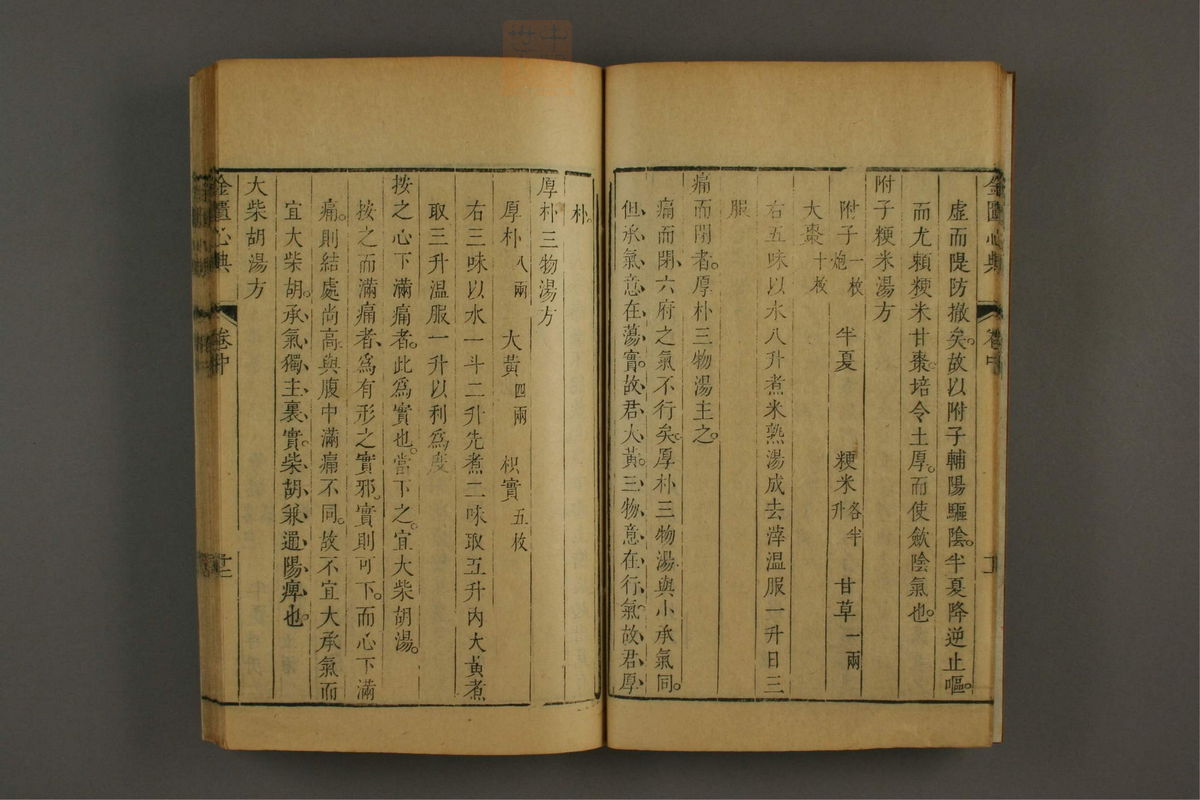 金匱心典 卷中
虛而隄防撤矣。故以附子輔陽驅陰。半夏降逆止嘔。
而尤賴粳米甘棗。培令土厚。而使歛陰氣也。
附子粳米湯方
附子一枚炮 半夏 粳米各半升 甘草一兩
大棗十枚
右五味以水八升煮米熟湯成去滓溫服一升日三
服
痛而閉者。厚朴三物湯主之。
痛而閉、六府之氣不行矣。厚朴三物湯與小承氣同。
但承氣意在蕩實。故君大黃。三物意在行氣。故君厚
朴。
厚朴三物湯方
厚朴八兩 大黃四兩 枳實五枚
右三味以水一斗二升先煮二味取五升內大黃煮
取三升溫服一升以利爲度
按之心下滿痛者。此爲實也。當下之。宜大柴胡湯。
按之而滿痛者、爲有形之實邪。實則可下。而心下滿
痛。則結處尚高、與腹中滿痛不同。故不宜大承氣而
宜大柴胡。承氣獨主裏實。柴胡兼通陽痺也。
大柴胡湯方
金匱心典 卷中 十二